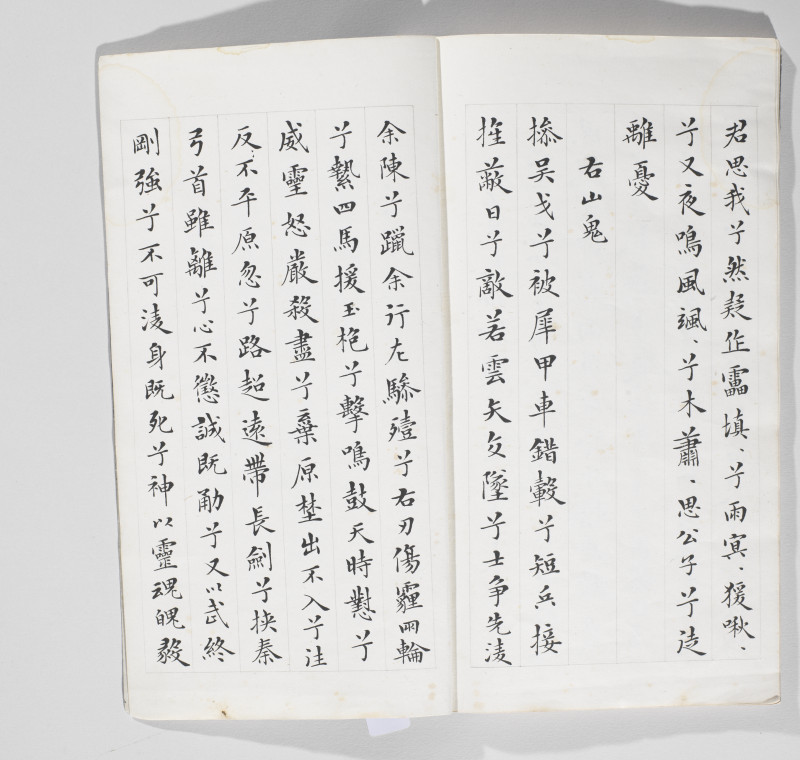 君思我兮然疑作靁填、兮雨冥、猨啾、
兮又夜鳴風颯、兮木蕭、思公子兮徒
離憂
右山鬼
操吴戈兮被犀甲車錯轂兮短兵接
旌蔽日兮敵若雲矢交墜兮士争先淩
余陳兮躐余行左驂殪兮右刃傷霾兩輪
兮縶四馬援玉枹兮擊鳴鼓天時懟兮
威靈怒嚴殺盡兮棄原埜出不入兮往
反不平原忽兮路超遠帶長劍兮挾秦
弓首雖離兮心不懲誠既勇兮又以武終
剛強兮不可淩身既死兮神以靈魂魄毅